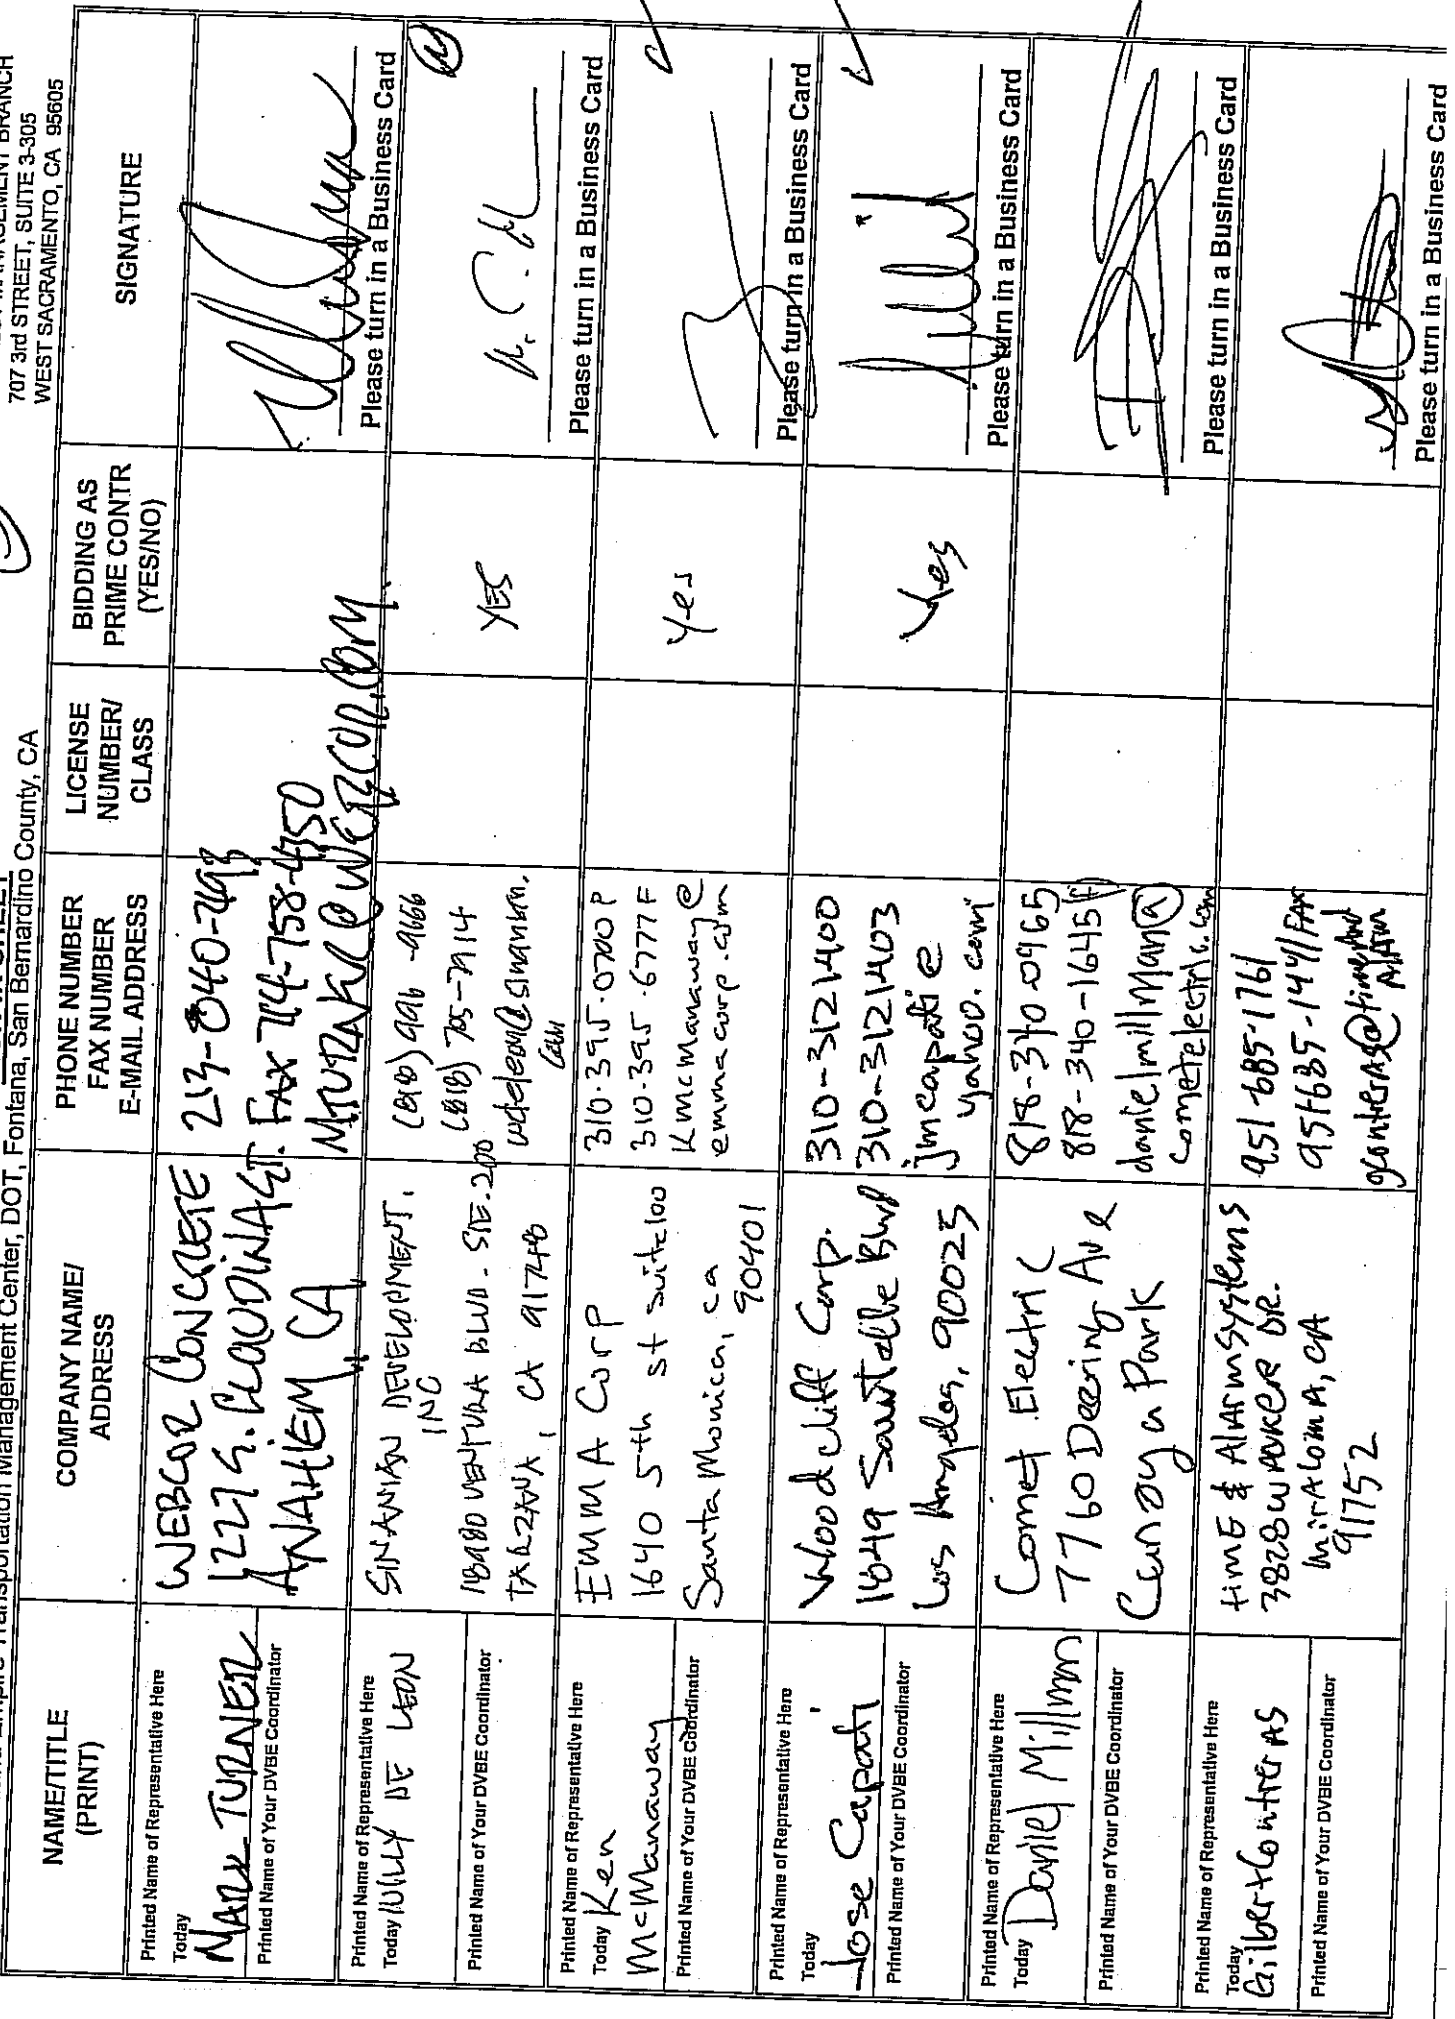 707 3rd STREET, SUITE 3-305
WEST SACRAMENTO, CA 95605
Transportation Management Center, DOT, Fontana, San Bernardino County, CA
NAME/TITLE
(PRINT)
COMPANY NAME/
ADDRESS
PHONE NUMBER
FAX NUMBER
E-MAIL ADDRESS
LICENSE
NUMBER/
CLASS
BIDDING AS
PRIME CONTR
(YES/NO)
SIGNATURE
Printed Name of Representative Here
Today
MARK TURNER
Printed Name of Your DVBE Coordinator
WEBCOR CONCRETE
1227 S. CLAUDINA ST.
ANAHIEM CA
FAX 714-758-4750
Please turn in a Business Card
Printed Name of Representative Here
Today WILLY DE LEON
Printed Name of Your DVBE Coordinator
SINANIAN DEVELOPMENT,
INC
18980 VENTURA BLVD. STE. 200
TARZANA, CA 91748
(818) 996-9666
(818) 705-7914
YES
Please turn in a Business Card
Printed Name of Representative Here
Today Ken
McManaway
Printed Name of Your DVBE Coordinator
EMMA Corp
1640 5th st suite 100
Santa Monica, ca
90401
310.395.0700 P
310.395.6777 F
Kmcmanaway@
emmacorp.com
Yes
Please turn in a Business Card
Printed Name of Representative Here
Today
Jose Capati
Printed Name of Your DVBE Coordinator
Woodcliff Corp.
1849 Sawtelle Blvd
Los Angeles, 90025
310-3121400
310-3121403
jmcapati@
yahoo.com
Yes
Please turn in a Business Card
Printed Name of Representative Here
Today Daniel Millman
Printed Name of Your DVBE Coordinator
Comet Electric
7760 Deering Ave
Canoga Park
818-340-0965
818-340-1645 (F)
danielmillman@
cometelectric.com
Please turn in a Business Card
Printed Name of Representative Here
Today
Gilbert Contreras
Printed Name of Your DVBE Coordinator
time & Alarm Systems
3828 Wacker DR.
Mira Loma, CA
91752
951-685-1761
951685-1441/FAX
gcontreras@timeAnd
Alarm
Please turn in a Business Card